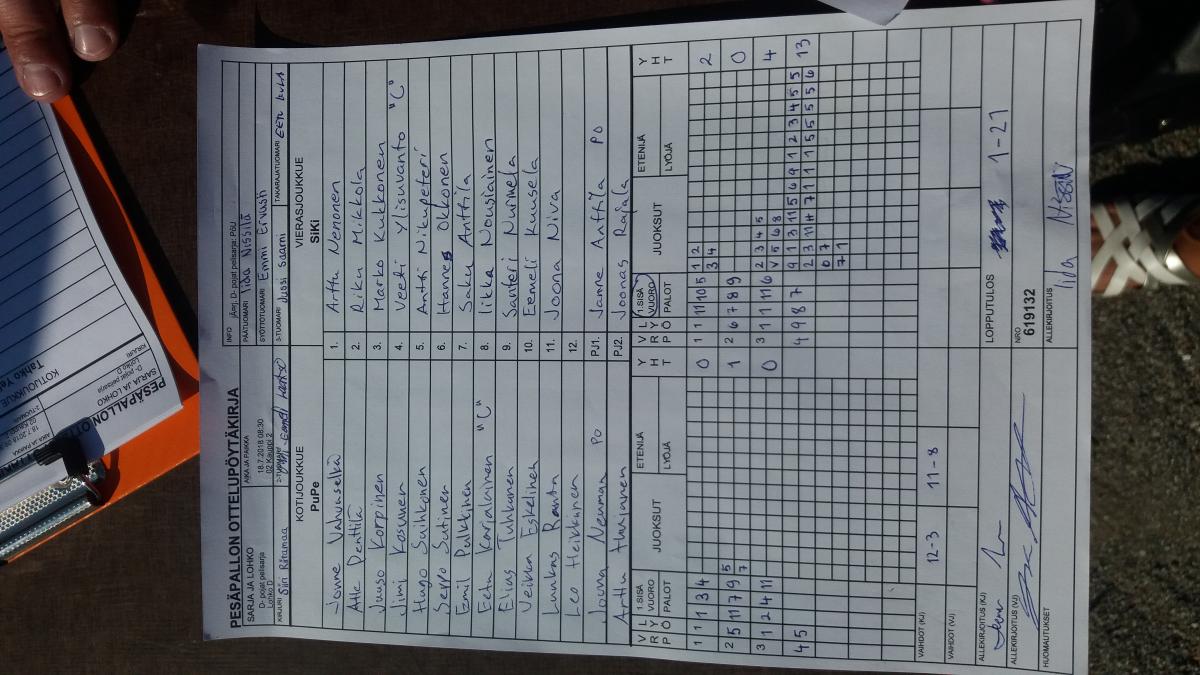 PESÄPALLON OTTELUPÖYTÄKIRJA
SARJA JA LOHKO
D- pojat pelisarja
Lohko D
AIKA JA PAIKKA
18.7.2018 08:30
02 Kauppi 2
INFO
PÄÄTUOMARI Iida Nissilä
SYÖTTÖTUOMARI Emmi Ervasti
KIRJURI Siiri Ritamaa
2-TUOMARI
3-TUOMARI Jussi Saarni
TAKARAJATUOMARI
KOTIJOUKKUE
PuPe
VIERASJOUKKUE
SiKi
1. Arttu Nenonen
Atte Penttilä 2. Riku Mikkola
Juuso Korpinen 3. Marko Kukkonen
Jimi Kosunen 4. Veeti Ylisuvanto "C"
Hugo Suihkonen 5. Antti Nikupeteri
Seppo Sutinen 6. Hannes Okkonen
Emil Pulkkinen 7. Saku Anttila
Eetu Karjalainen "C" 8. Iikka Nousiainen
Elias Tuhkanen 9. Santeri Nurmela
Veikka Eskelinen 10. Eemeli Kuusela
Luukas Ranta 11. Joona Niva
Leo Heikkinen 12.
Jouna Neuman PO PJ1. Janne Anttila PO
Arttu PJ2. Joonas Rajala
V R P L Y Ö 1.SISÄ VUORO PALOT JUOKSUT ETENIJÄ LYÖJÄ Y H T
V R P L Y Ö 1.SISÄ VUORO PALOT JUOKSUT ETENIJÄ LYÖJÄ Y H T
1 1 1 3 4 0
1 1 11 10 5 1 2 2
3 4
2 5 11 7 9 5 1
7
2 6 7 8 9 0
3 1 2 4 11 0
3 1 11 11 6 2 3 4 5 4
V 5 6 8
4 5
4 9 8 7 9 1 3 11 5 6 9 1 2 3 4 5 5 13
VAIHDOT (KJ) 12-3 11-8
VAIHDOT (VJ)
ALLEKIRJOITUS (KJ)
LOPPUTULOS 1-21
ALLEKIRJOITUS (VJ)
NRO
619132
HUOMAUTUKSET
ALLEKIRJOITUS
Iida Nissilä
PESÄPALLON OTT
SARJA JA LOHKO
D- pojat pelisarja
Lohko D
KIRJURI
AIKA JA PAIKKA
18.7.2018
02 Kauppi
2-TUOMARI
KOTIJOUKKUE